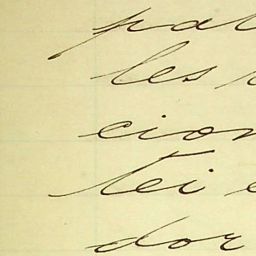 pal
les
cion
tei e
dor